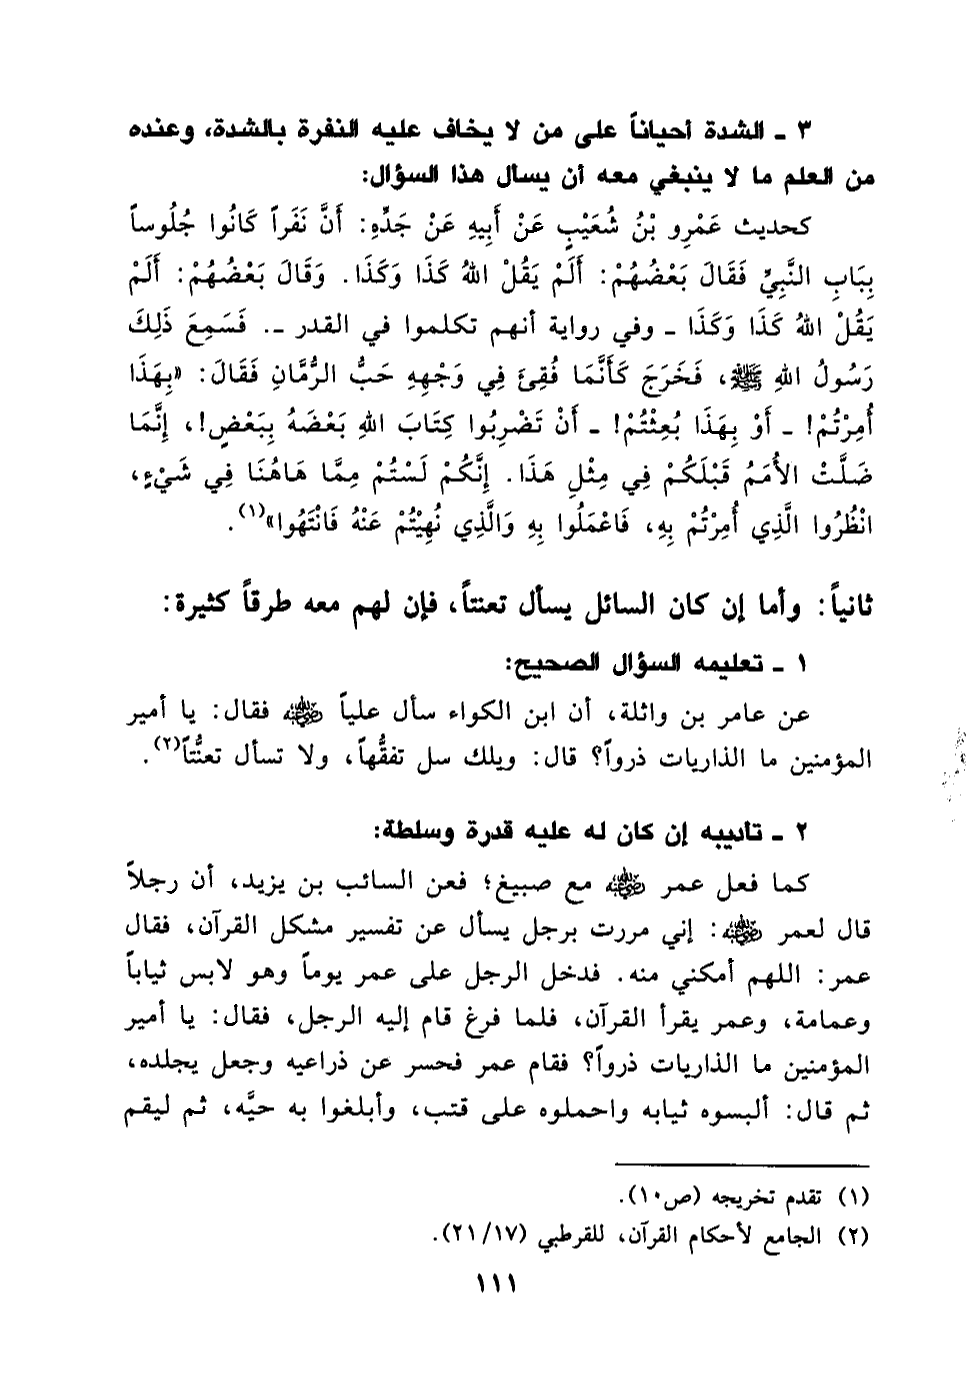 ٣ ـ الشدة أحياناً على من لا يخاف عليه النفرة بالشدة، وعنده
من العلم ما لا ينبغي معه أن يسأل هذا السؤال:
كحديث عَمْرِو بْنُ شُعَيْبٍ عَنْ أَبِيهِ عَنْ جَدِّهِ: أَنَّ نَفَراً كَانُوا جُلُوساً
بِبَابِ النَّبِيِّ فَقَالَ بَعْضُهُمْ: أَلَمْ يَقُلْ اللهُ كَذَا وَكَذَا. وَقَالَ بَعْضُهُمْ: أَلَمْ
يَقُلْ اللهُ كَذَا وَكَذَا ـ وفي رواية أنهم تكلموا في القدر ـ. فَسَمِعَ ذَلِكَ
رَسُولُ اللهِ ﷺ، فَخَرَجَ كَأَنَّمَا فُقِئَ فِي وَجْهِهِ حَبُّ الرُّمَّانِ فَقَالَ: «بِهَذَا
أُمِرْتُمْ! ـ أَوْ بِهَذَا بُعِثْتُمْ! ـ أَنْ تَضْرِبُوا كِتَابَ اللهِ بَعْضَهُ بِبَعْضٍ!، إِنَّمَا
ضَلَّتْ الأُمَمُ قَبْلَكُمْ فِي مِثْلِ هَذَا. إِنَّكُمْ لَسْتُمْ مِمَّا هَاهُنَا فِي شَيْءٍ،
انْظُرُوا الَّذِي أُمِرْتُمْ بِهِ، فَاعْمَلُوا بِهِ وَالَّذِي نُهِيْتُمْ عَنْهُ فَانْتَهُوا»(١).
ثانياً: وأما إن كان السائل يسأل تعنتاً، فإن لهم معه طرقاً كثيرة:
١ ـ تعليمه السؤال الصحيح:
عن عامر بن واثلة، أن ابن الكواء سأل علياً رضي الله عنه فقال: يا أمير
المؤمنين ما الذاريات ذرواً؟ قال: ويلك سل تفقُّهاً، ولا تسأل تعنُّتاً(٢).
٢ ـ تأديبه إن كان له عليه قدرة وسلطة:
كما فعل عمر رضي الله عنه مع صبيغ؛ فعن السائب بن يزيد، أن رجلاً
قال لعمر رضي الله عنه: إني مررت برجل يسأل عن تفسير مشكل القرآن، فقال
عمر: اللهم أمكني منه. فدخل الرجل على عمر يوماً وهو لابس ثياباً
وعمامة، وعمر يقرأ القرآن، فلما فرغ قام إليه الرجل، فقال: يا أمير
المؤمنين ما الذاريات ذرواً؟ فقام عمر فحسر عن ذراعيه وجعل يجلده،
ثم قال: ألبسوه ثيابه واحملوه على قتب، وأبلغوا به حيَّه، ثم ليقم
(١) تقدم تخريجه (ص١٠).
(٢) الجامع لأحكام القرآن، للقرطبي (٢١/١٧).
١١١